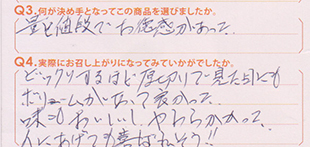 Q3.何が決め手となってこの商品を選びましたか。
量と値段でお徳感があった。
Q4.実際にお召し上がりになってみていかがでしたか。
どっくりするほど厚切りで見た目にも
ボリュームがあって良かった。
味もおいしいし、やわらかかった。
人にあげても喜ばれそう!!